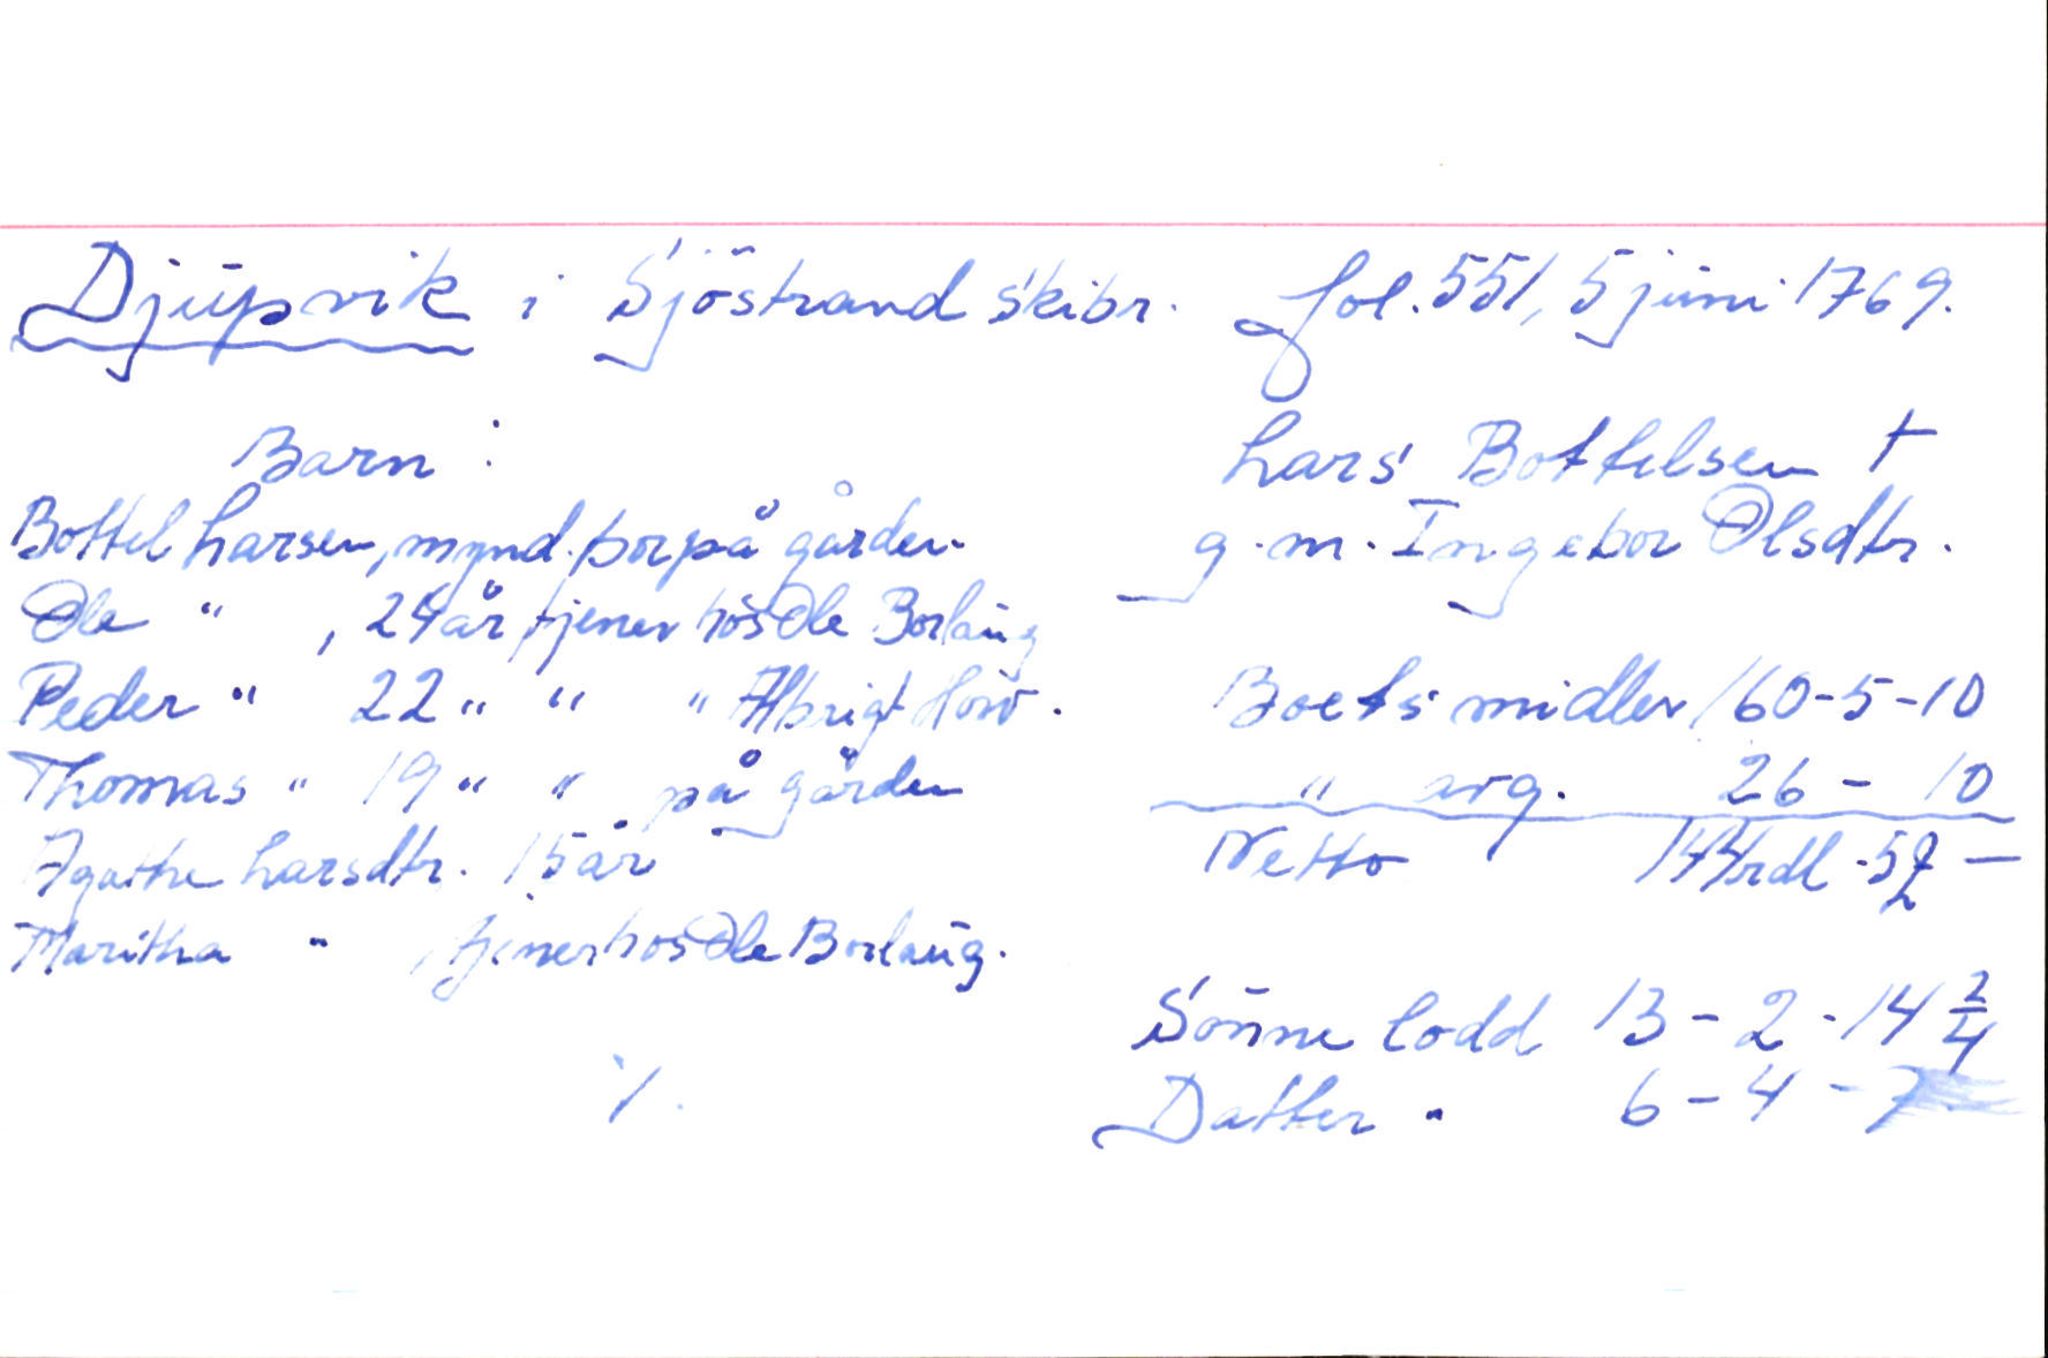 Djupvik i Sjöstrand skibr. fol. 551, 5 juni 1769.
Barn :
Bottel Larsen, mynd. bor på gården.
Ole " , 24 år tjener hos Ole Borlaug
Peder " 22 " " " Albrigt
Thomas " 19 " " på gården
Agathe Larsdtr. 15 år
Maritha " , tjener hos Ole Borlaug.
Lars Bottelsen †
g.m. Ingebor Olsdtr.
Boets midler 160-5-10
" avg. 26 - 10
Netto rdl
Sönne lodd 13 - 2 - 14 2/4
Datter " 6 - 4 - 7